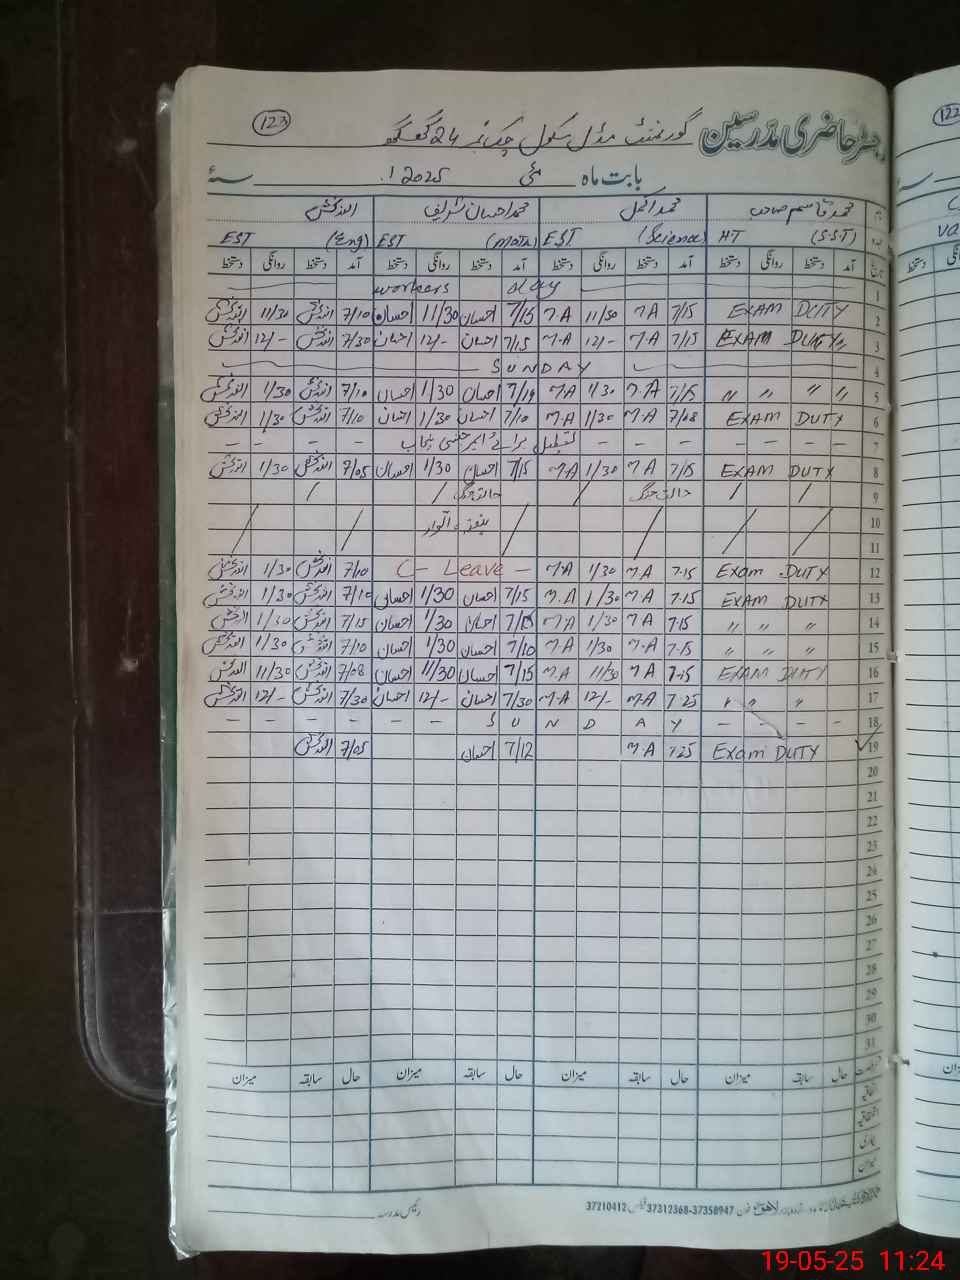 123
رجسٹر حاضری مدرسین گورنمنٹ مڈل سکول چک نمبر 24
بابت ماہ مئی 2025ء سنہ
محمد قاسم صاحب محمد اکمل محمد احسان شریف اللہ بخش
HT (S.S.T) EST (Science) EST (Math) EST (Eng)
تاریخ آمد دستخط روانگی دستخط آمد دستخط روانگی دستخط آمد دستخط روانگی دستخط آمد دستخط روانگی دستخط
1 workers day
2 EXAM DUTY 7/15 M.A 11/30 M.A 7/15 احسان 11/30 احسان 7/10 اللہ بخش 11/30 اللہ بخش
3 EXAM DUTY 7/15 M.A 12/- M.A 7/15 احسان 12/- احسان 7/30 اللہ بخش 12/- اللہ بخش
4 SUNDAY
5 " " " " 7/15 M.A 1/30 M.A احسان 1/30 احسان 7/10 اللہ بخش 1/30 اللہ بخش
6 EXAM DUTY 7/08 M.A 1/30 M.A 7/10 احسان 1/30 احسان 7/10 اللہ بخش 1/30 اللہ بخش
7 - - - - تعطیل برائے ایمرجنسی پنجاب - - - -
8 EXAM DUTY 7/15 M.A 1/30 M.A 7/15 احسان 1/30 احسان 7/05 اللہ بخش 1/30 اللہ بخش
9 / / حالت جنگ / حالت جنگ / /
10 ہفتہ، اتوار
11
12 Exam DUTY 7.15 M.A 1/30 M.A C - Leave - 7/10 اللہ بخش 1/30 اللہ بخش
13 EXAM DUTY 7.15 M.A 1/30 M.A 7/15 احسان 1/30 احسان 7/10 اللہ بخش 1/30 اللہ بخش
14 " " " 7.15 M.A 1/30 M.A احسان 1/30 احسان 7/15 اللہ بخش 1/30 اللہ بخش
15 " " " 7.15 M.A 1/30 M.A 7/10 احسان 1/30 احسان 7/10 اللہ بخش 1/30 اللہ بخش
16 EXAM DUTY 7.15 M.A 11/30 M.A 7/15 احسان 11/30 احسان 7/08 اللہ بخش 11/30 اللہ بخش
17 " " " 7.25 M.A 12/- M.A 7/30 احسان 12/- احسان 7/30 اللہ بخش 12/- اللہ بخش
18 - - - - - - S U N D A Y - - - -
19 Exam DUTY 7.25 M.A 7/12 احسان 7/05 اللہ بخش
20
21
22
23
24
25
26
27
28
29
30
31
حال سابقہ میزان حال سابقہ میزان حال سابقہ میزان حال سابقہ میزان
اتفاقیہ
بیماری
میزان
لاہور فون 37312368-37358947 فیکس 37210412 رئیس مدرسہ
122
19-05-25 11:24